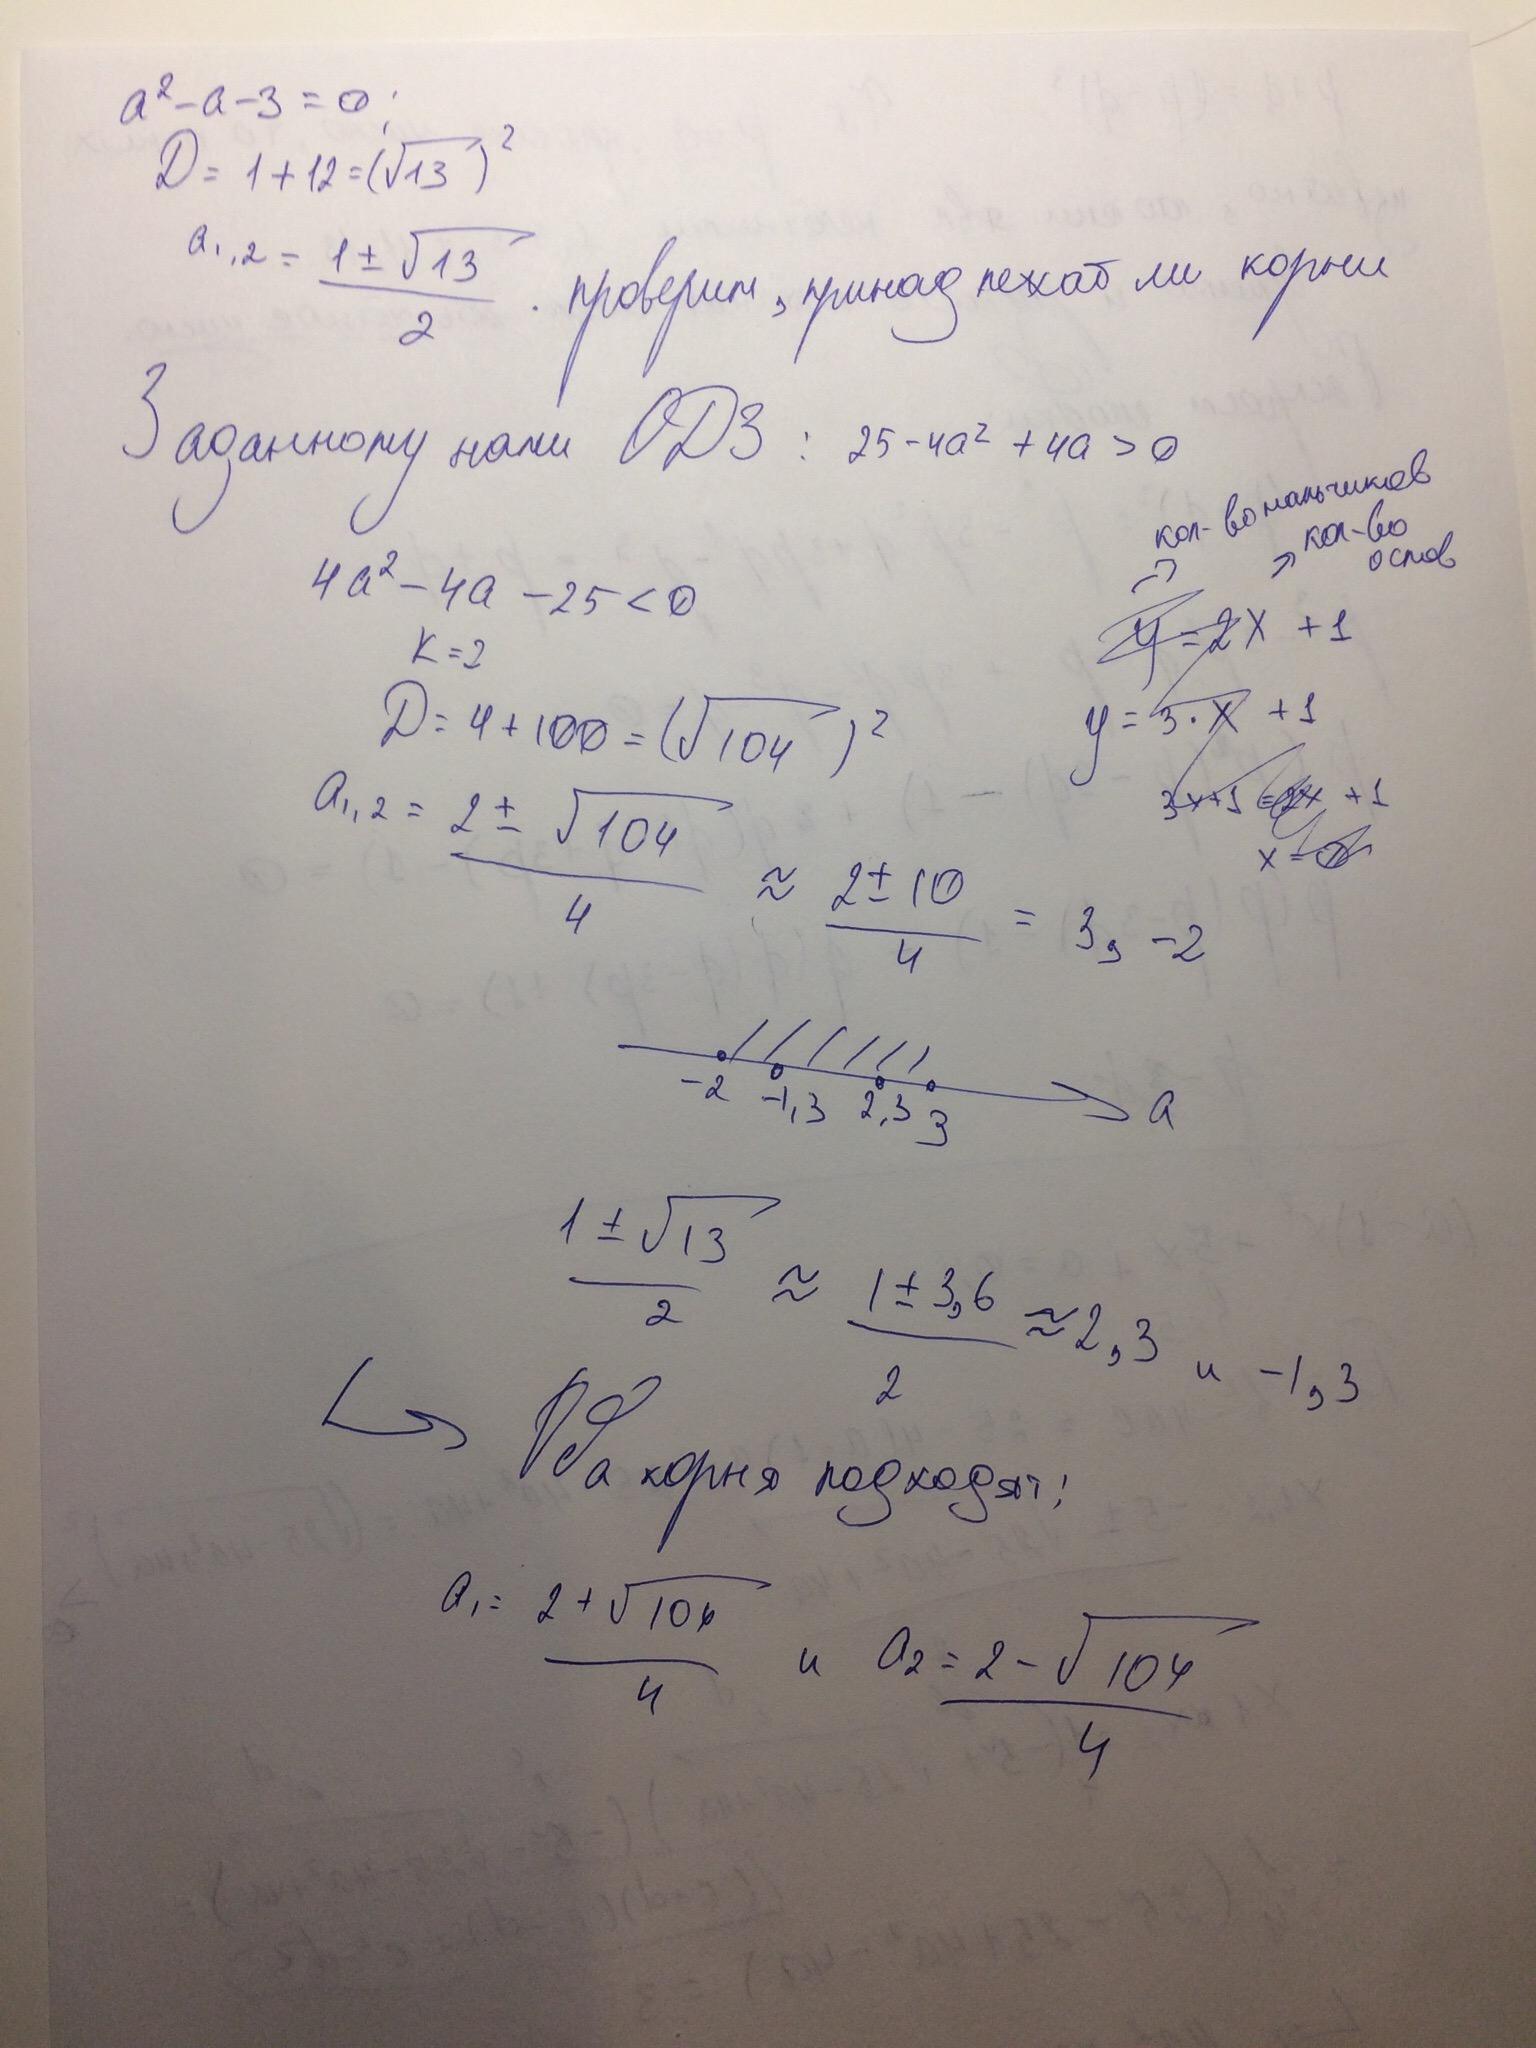 a² - a - 3 = 0;
D = 1 + 12 = (√13)²
a₁,₂ = (1 ± √13)/2 . проверим, принадлежат ли корни
Заданному нами ОДЗ: 25 - 4a² + 4a > 0
кол-во мальчиков
кол-во
основ
4a² - 4a - 25 < 0
y = 2x + 1
k = 2
D = 4 + 100 = (√104)²
y = 3·x + 1
a₁,₂ = (2 ± √104)/4 ≈ (2 ± 10)/4 = 3, -2
3x+1 = 2x + 1
x = 0
-2 -1,3 2,3 3 a
(1 ± √13)/2 ≈ (1 ± 3,6)/2 ≈ 2,3 и -1,3
Два корня подходят:
a₁ = (2 + √104)/4 и a₂ = (2 - √104)/4